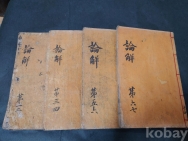 論解
第二
論解
第三四
論解
第五六
論解
第六七
kobay